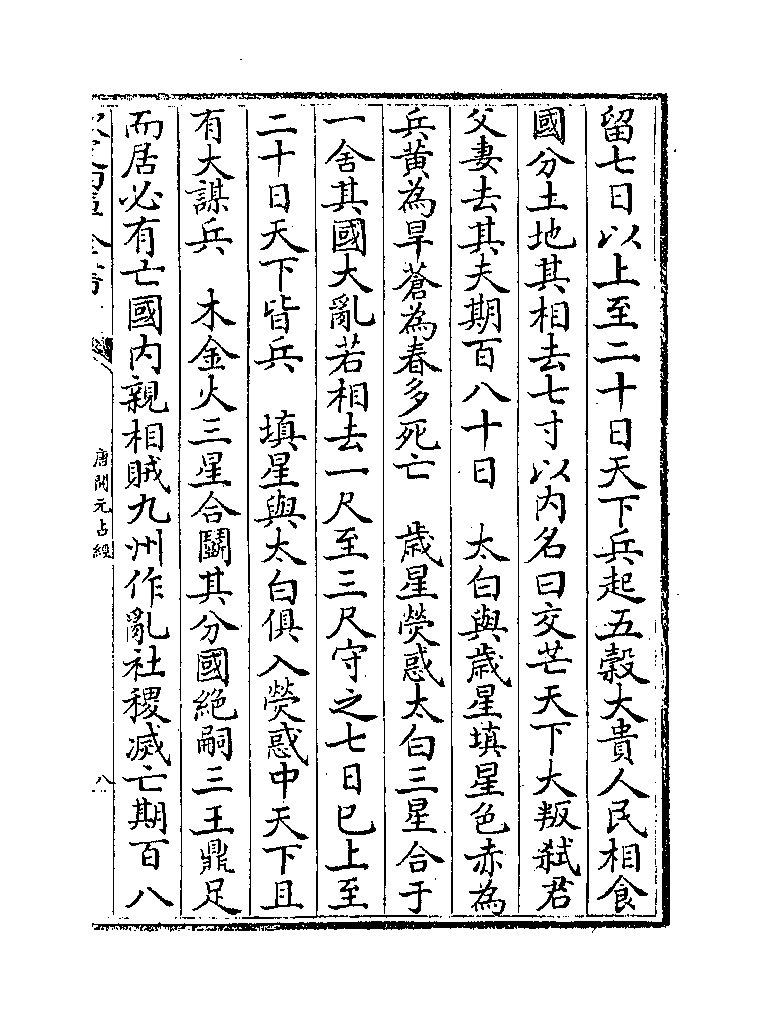 留七日以上至二十日天下兵起五榖大貴人民相食
國分土地其相去七寸以内名曰交芒天下大叛弑君
父妻去其夫期百八十日　太白與歳星填星色赤為
兵黄為旱蒼為春多死亡　歳星熒惑太白三星合于
一舍其國大亂若相去一尺至三尺守之七日已上至
二十日天下皆兵　填星與太白俱入熒惑中天下且
有大謀兵　木金火三星合鬭其分國絶嗣三王鼎足
而居必有亡國内親相賊九州作亂社稷滅亡期百八
唐開元占經
八